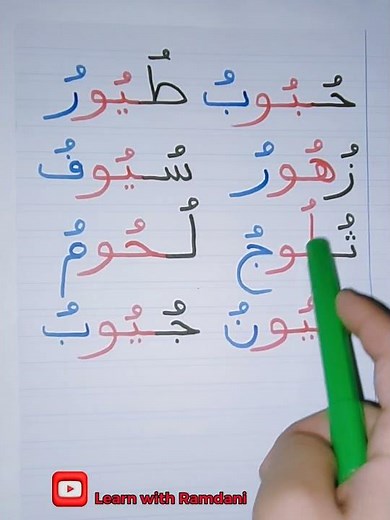 حُبُوبُ طُيُورُ
زُهُورُ سُيُوفُ
ثُلُوجُ لُحُومُ
جُيُوبُ
Learn with Ramdani